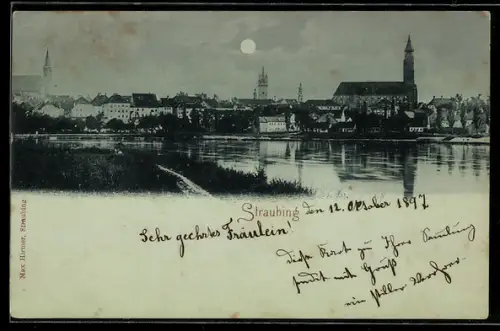 Straubing, den 12. Oktober 1897
Sehr geehrtes Fräulein!
diese Kart zu Ihrer Samlung
sendet mit Gruß
ein stiller Verehrer.
Max Hirmer, Straubing